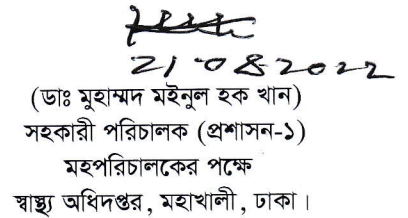 21.08.2022
(ডাঃ মুহাম্মদ মইনুল হক খান)
সহকারী পরিচালক (প্রশাসন-১)
মহপরিচালকের পক্ষে
স্বাস্থ্য অধিদপ্তর, মহাখালী, ঢাকা।